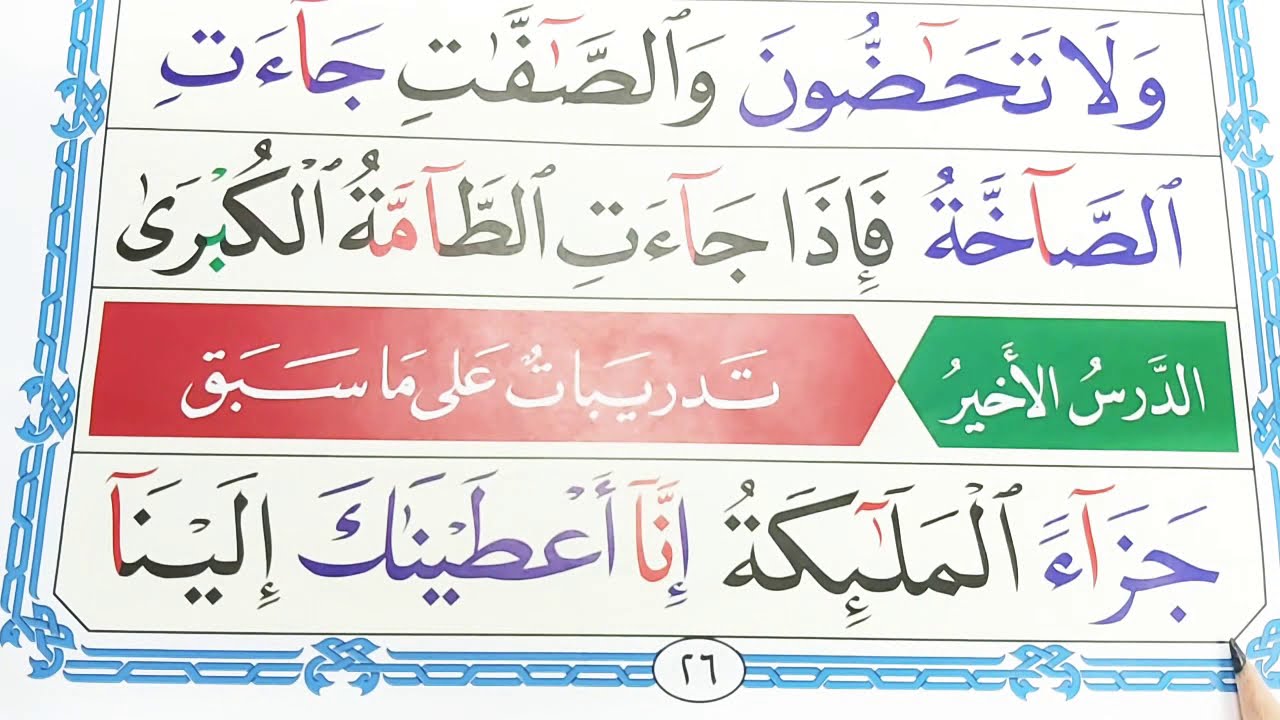 وَلَا تَحَـٰٓضُّونَ وَٱلصَّـٰٓفَّـٰتِ جَآءَتِ
ٱلصَّآخَّةُ فَإِذَا جَآءَتِ ٱلطَّآمَّةُ ٱلْكُبْرَىٰ
الدَّرسُ الأَخيرُ تَدريَباتٌ عَلى مَا سَبَقَ
جَزَآءَ ٱلْمَلَـٰٓئِكَةُ إِنَّآ أَعْطَيْنَـٰكَ إِلَيْنَآ
٢٦